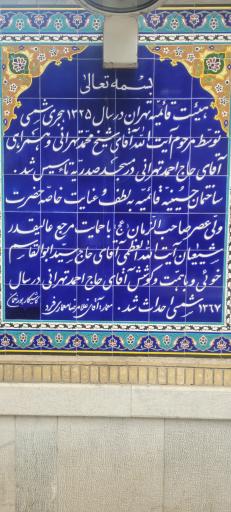 بسمه تعالی
هیئت قائمیه تهران در سال ۱۳۳۵ هجری شمسی
توسط مرحوم آیت الله آقای شیخ محمد تهرانی و همراهی
آقای حاج احمد تهرانی در مسجد صدریه تاسیس شد.
ساختمان حسینیه قائمیه به لطف و عنایت خاصه حضرت
ولی عصر صاحب الزمان عج با حمایت مرجع عالیقدر
شیعیان آیت الله العظمی آقای حاج سید ابوالقاسم
خوئی و با همت و کوشش آقای حاج احمد تهرانی در سال
۱۳۶۷ شمسی احداث شد. معمار: آقای غلامرضا معماری فرد